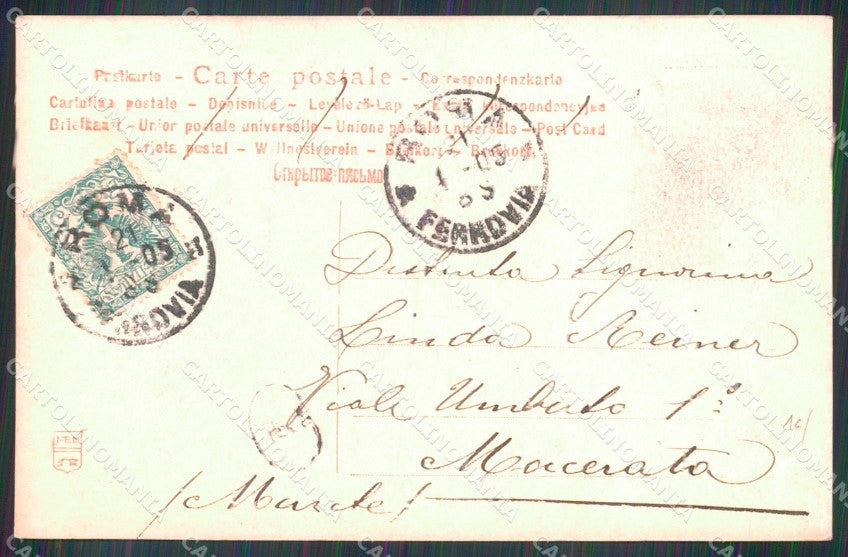 Postkarte - Carte postale - Correspondenzkarte
Cartolina postale - Dopisnice - Levelező-Lap -
Briefkaart - Union postale universelle - Unione postale universale - Post Card
Tarjeta postal - Weltpostverein - Brefkort - Brevkort
Открытое письмо
ROMA
21
1-05
8S
FERROVIA
ROMA
21
1-05
8S
FERROVIA
Distinta Signorina
Linda Reiner
Viale Umberto 1º
Macerata
(Marche)
CARTOLINOMANIA